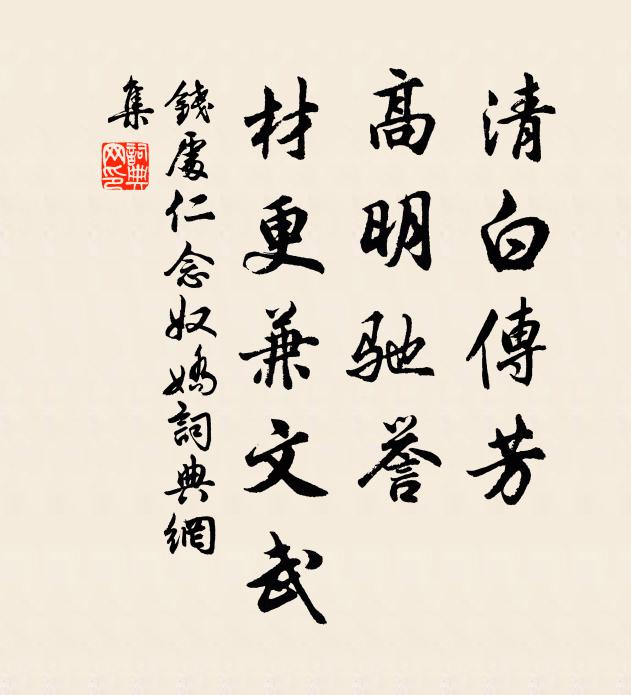 清白傳芳
高明馳譽
材更兼文武
錢處仁念奴嬌詞典網
集
詞典
网印